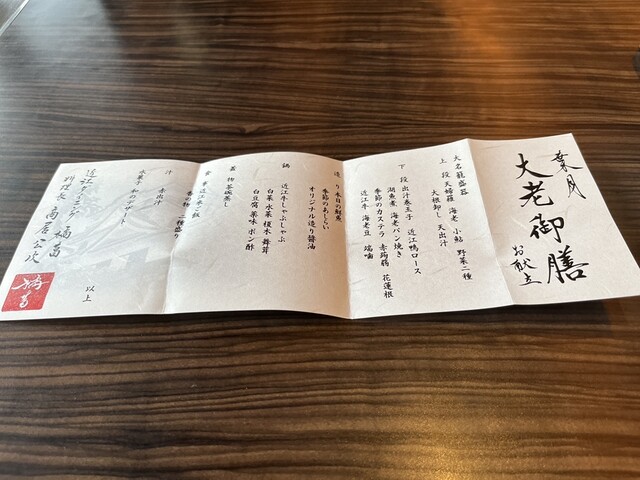 葉月
大老御膳
お献立
大名籠盛器
上 段 天婦羅 海老 小鮎 野菜二種
大根卸し 天出汁
下 段 出汁巻玉子 近江鴨ロース
湖魚煮 海老パン焼き
季節のカステラ 赤蒟蒻 花蓮根
近江牛 海老豆
造 り 本日の鮮魚
季節のあしらい
オリジナル造り醤油
鍋 近江牛しゃぶしゃぶ
白菜 水菜 榎木 舞茸
白豆腐 薬味 ポン酢
蒸 物 茶碗蒸し
食 事 近江米ご飯
香の物 二種盛り
汁 赤出汁
水菓子 和のデザート
以上
料理長 高居